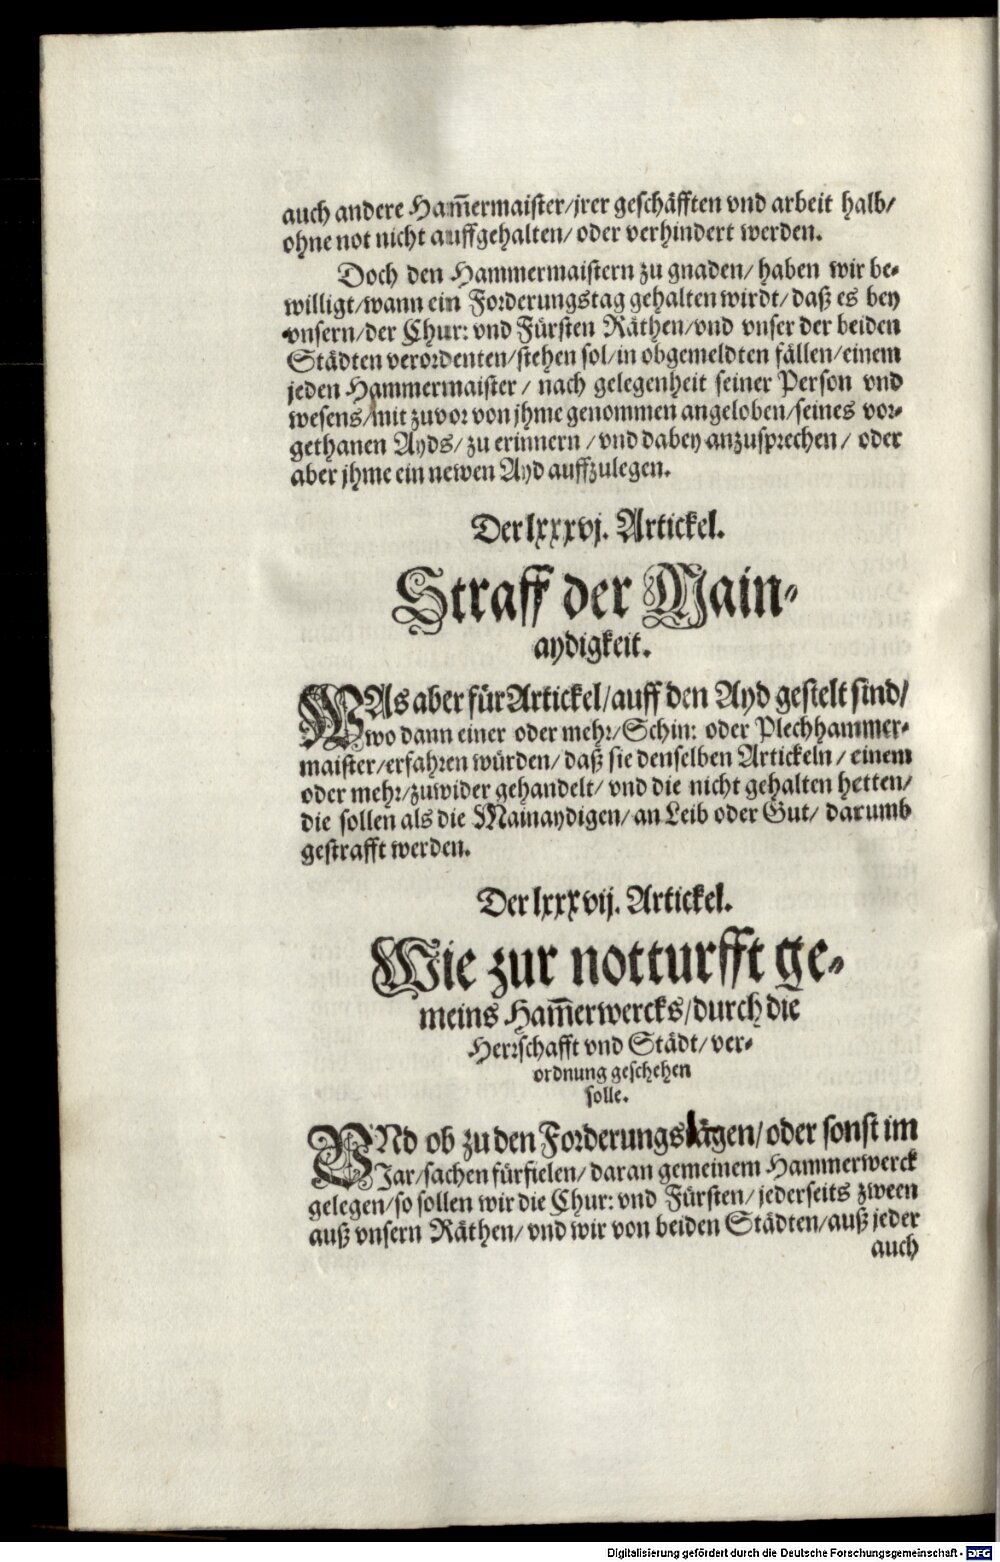 auch andere Ham̃ermaister/jrer geschäfften vnd arbeit halb/
ohne not nicht auffgehalten/ oder verhindert werden.
Doch den Hammermaistern zu gnaden/ haben wir be-
willigt/wann ein Forderungstag gehalten wirdt/ daß es bey
vnsern/der Chur: vnd Fürsten Räthen/vnd vnser der beiden
Städten verordenten/stehen sol/in obgemeldten fällen/einem
jeden Hammermaister / nach gelegenheit seiner Person vnd
wesens/mit zuvor von jhme genommen angeloben/seines vor-
gethanen Ayds/ zu erinnern /vnd dabey anzusprechen/ oder
aber jhme ein newen Ayd auffzulegen.
Der lxxxvj. Artickel.
Straff der Main-
aydigkeit.
WAs aber für Artickel/auff den Ayd gestelt sind/
wo dann einer oder mehr/Schin: oder Plechhammer-
maister/erfahren würden/ daß sie denselben Artickeln/ einem
oder mehr/zuwider gehandelt/ vnd die nicht gehalten hetten/
die sollen als die Mainaydigen/ an Leib oder Gut/ darumb
gestrafft werden.
Der lxxxvij. Artickel.
Wie zur notturfft ge-
meins Ham̃erwercks/durch die
Herrschafft vnd Städt/ ver-
ordnung geschehen
solle.
VNd ob zu den Forderungstägen/ oder sonst im
Jar/sachen fürfielen/ daran gemeinem Hammerwerck
gelegen/so sollen wir die Chur: vnd Fürsten/ jederseits zween
auß vnsern Räthen/ vnd wir von beiden Städten/auß jeder
auch
Digitalisierung gefördert durch die Deutsche Forschungsgemeinschaft - DFG